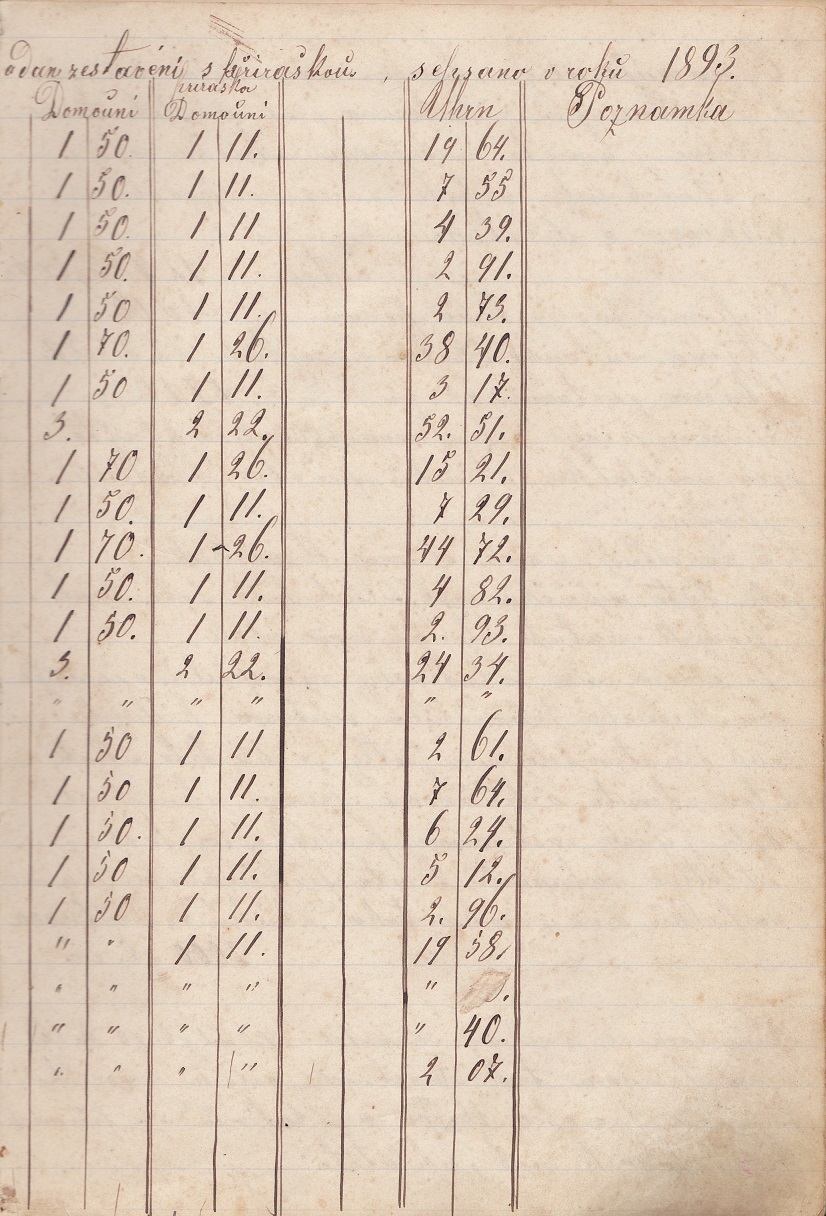 s přiráškou, sepsano v roku 1893.
přiráska
Domouni Domouni Uhrn Poznamka
1 50. 1 11. 19 64.
1 50. 1 11. 7 55
1 50. 1 11 4 39.
1 50. 1 11. 2 91.
1 50 1 11. 2 73.
1 70. 1 26. 38 40.
1 50 1 11. 3 17.
3. 2 22. 52. 51.
1 70 1 26. 15 21.
1 50. 1 11. 7 29.
1 70. 1 26. 44 72.
1 50. 1 11. 4 82.
1 50. 1 11. 2. 93.
3. 2 22. 24 34.
" " " " " "
1 50 1 11 2 61.
1 50 1 11. 7 64.
1 50. 1 11. 6 24.
1 50 1 11. 5 12.
1 50 1 11. 2. 96.
" " 1 11. 19 58.
" " " " "
" " " " " 40.
" " " " 2 07.